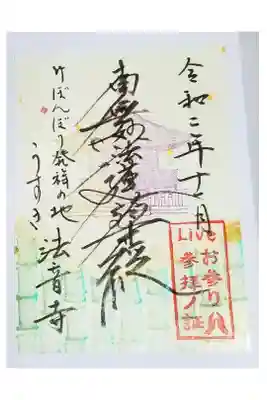 令和二年十一月
南無妙法蓮華経
竹ぼんぼり発祥の地
うすき 法音寺
Live お参り
参拝ノ証